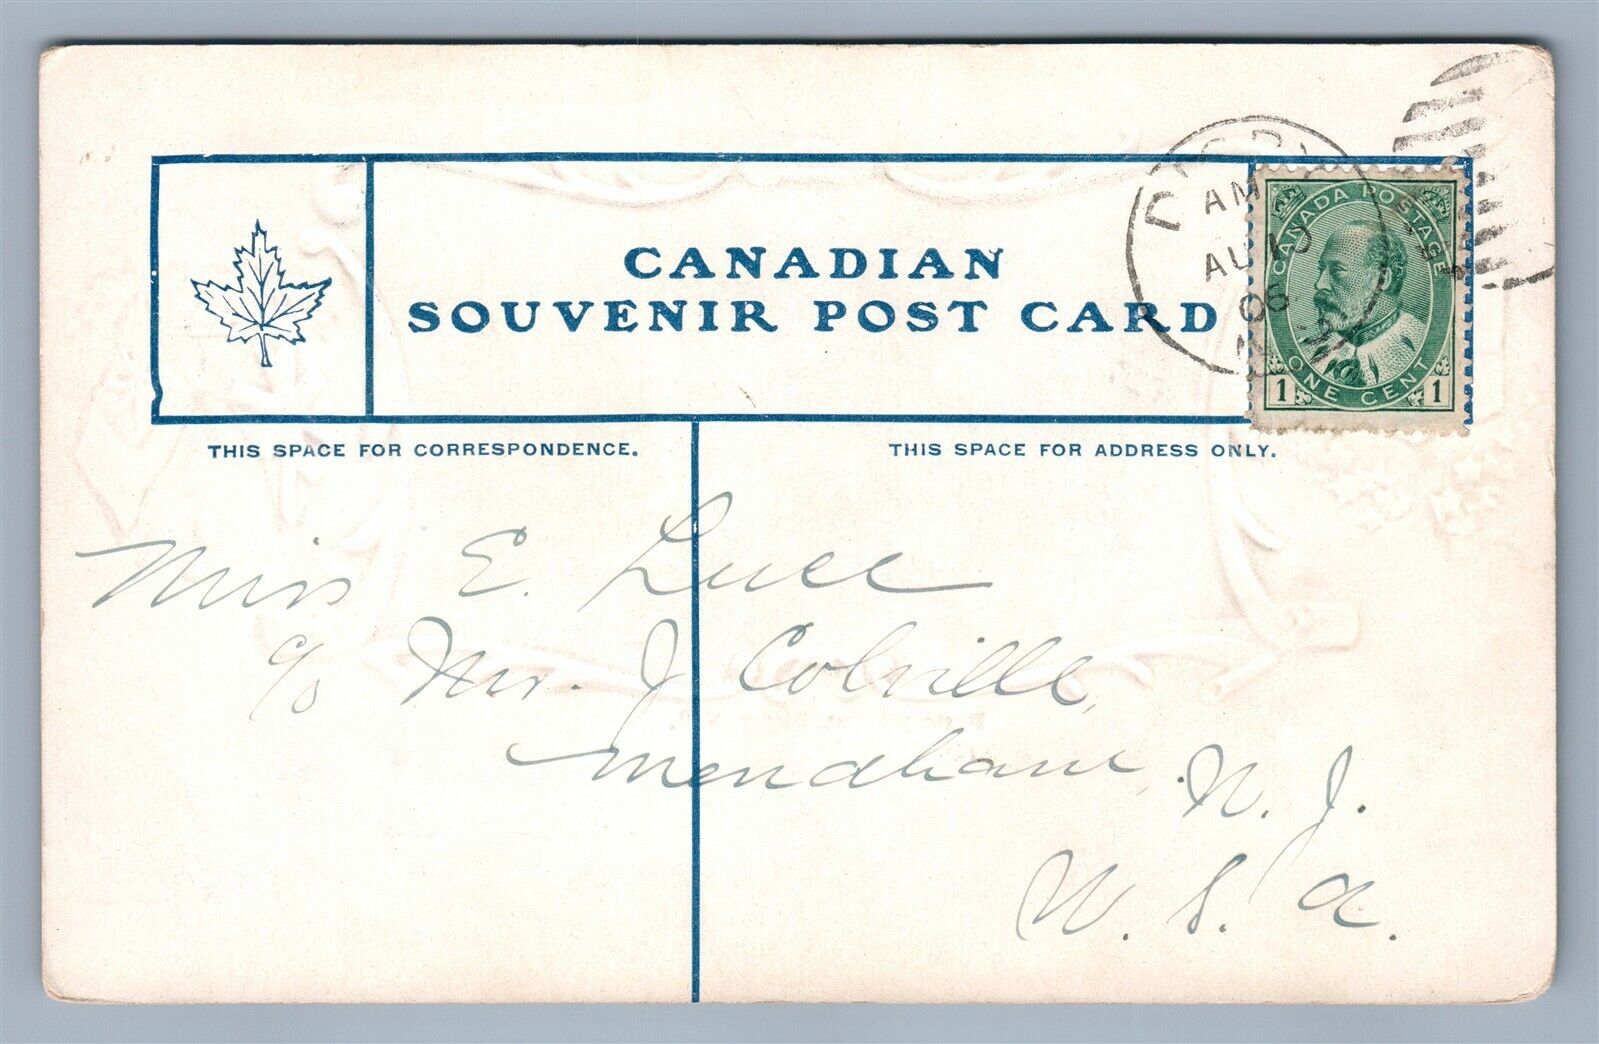 CANADIAN
SOUVENIR POST CARD
AM
AU 10
06
CANADA POSTAGE
ONE CENT
1 1
THIS SPACE FOR CORRESPONDENCE.
THIS SPACE FOR ADDRESS ONLY.
Miss E. Luce
c/o Mr. J Colville,
Mendham, N. J.
U. S. A.